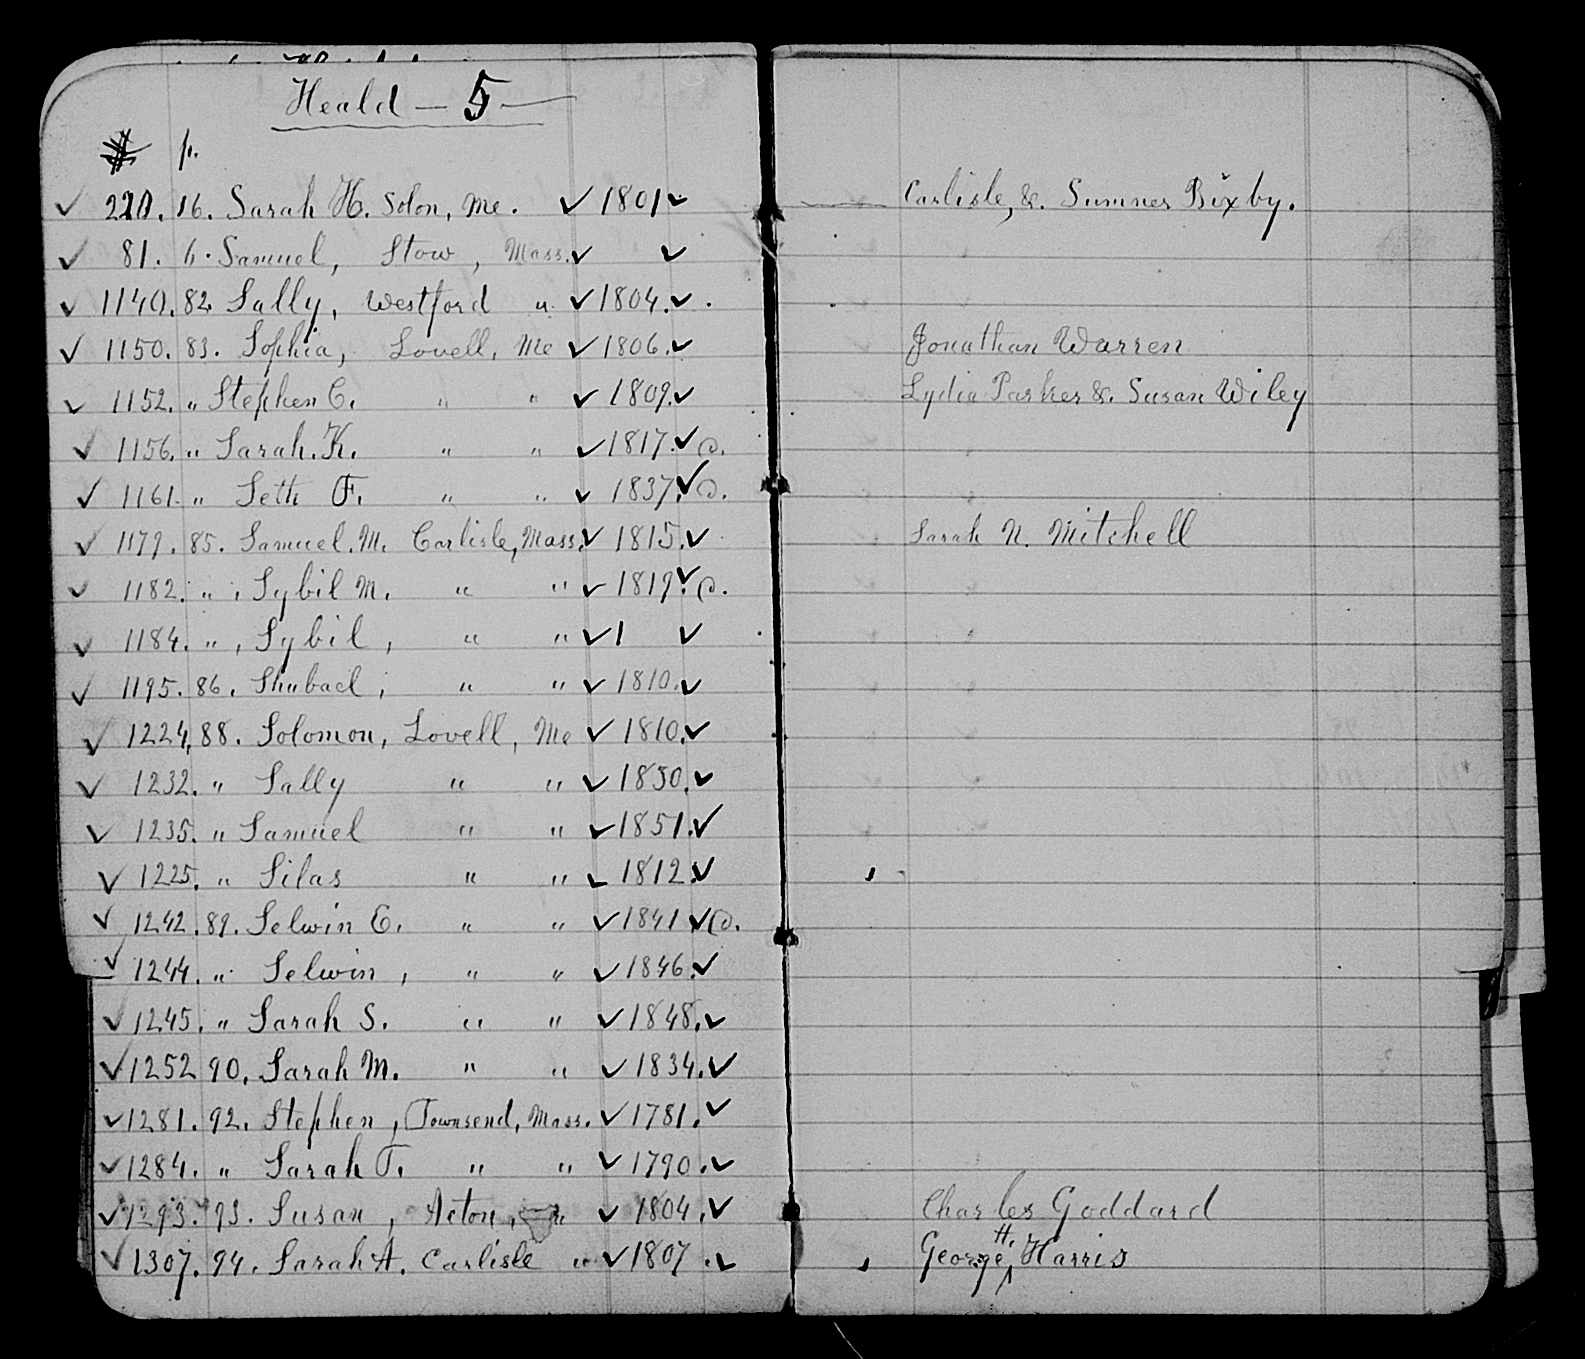 Heald — 5 —
# p.
✓ 220. 16. Sarah H. Solon, Me. ✓ 1801 ✓ Carlisle, &. Sumner Bixby.
✓ 81. 6. Samuel, Stow, Mass. ✓ ✓
✓ 1140. 82 Sally, Westford " ✓ 1804. ✓ .
✓ 1150. 83. Sophia, Lovell, Me ✓ 1806. ✓ Jonathan Warren
✓ 1152. " Stephen C. " " ✓ 1809. ✓ Lydia Parker &. Susan Wiley
✓ 1156. " Sarah. K. " " ✓ 1817. ✓ D.
✓ 1161. " Seth F. " " ✓ 1837. ✓ D.
✓ 1179. 85. Samuel. M. Carlisle, Mass. ✓ 1815. ✓ Sarah N. Mitchell
✓ 1182. " Sybil M. " " ✓ 1819. ✓ D.
✓ 1184. " , Sybil, " " ✓ 1 ✓
✓ 1195. 86. Shubael, " " ✓ 1810. ✓
✓ 1224, 88. Solomon, Lovell, Me ✓ 1810. ✓
✓ 1232. " Sally " " ✓ 1850. ✓
✓ 1235. " Samuel " " ✓ 1851. ✓
✓ 1225. " Silas " " ✓ 1812. ✓
✓ 1242. 89. Selwin E. " " ✓ 1841 ✓ D.
✓ 1244. " Selwin, " " ✓ 1846. ✓
✓ 1245. " Sarah S. " " ✓ 1848. ✓
✓ 1252 90. Sarah M. " " ✓ 1834. ✓
✓ 1281. 92. Stephen, Townsend, Mass. ✓ 1781. ✓
✓ 1284. " Sarah T. " " ✓ 1790. ✓
✓ 1293. 93. Susan, Acton, " ✓ 1804. ✓ Charles Goddard
✓ 1307. 94. Sarah A. Carlisle " ✓ 1807. ✓ George H. Harris